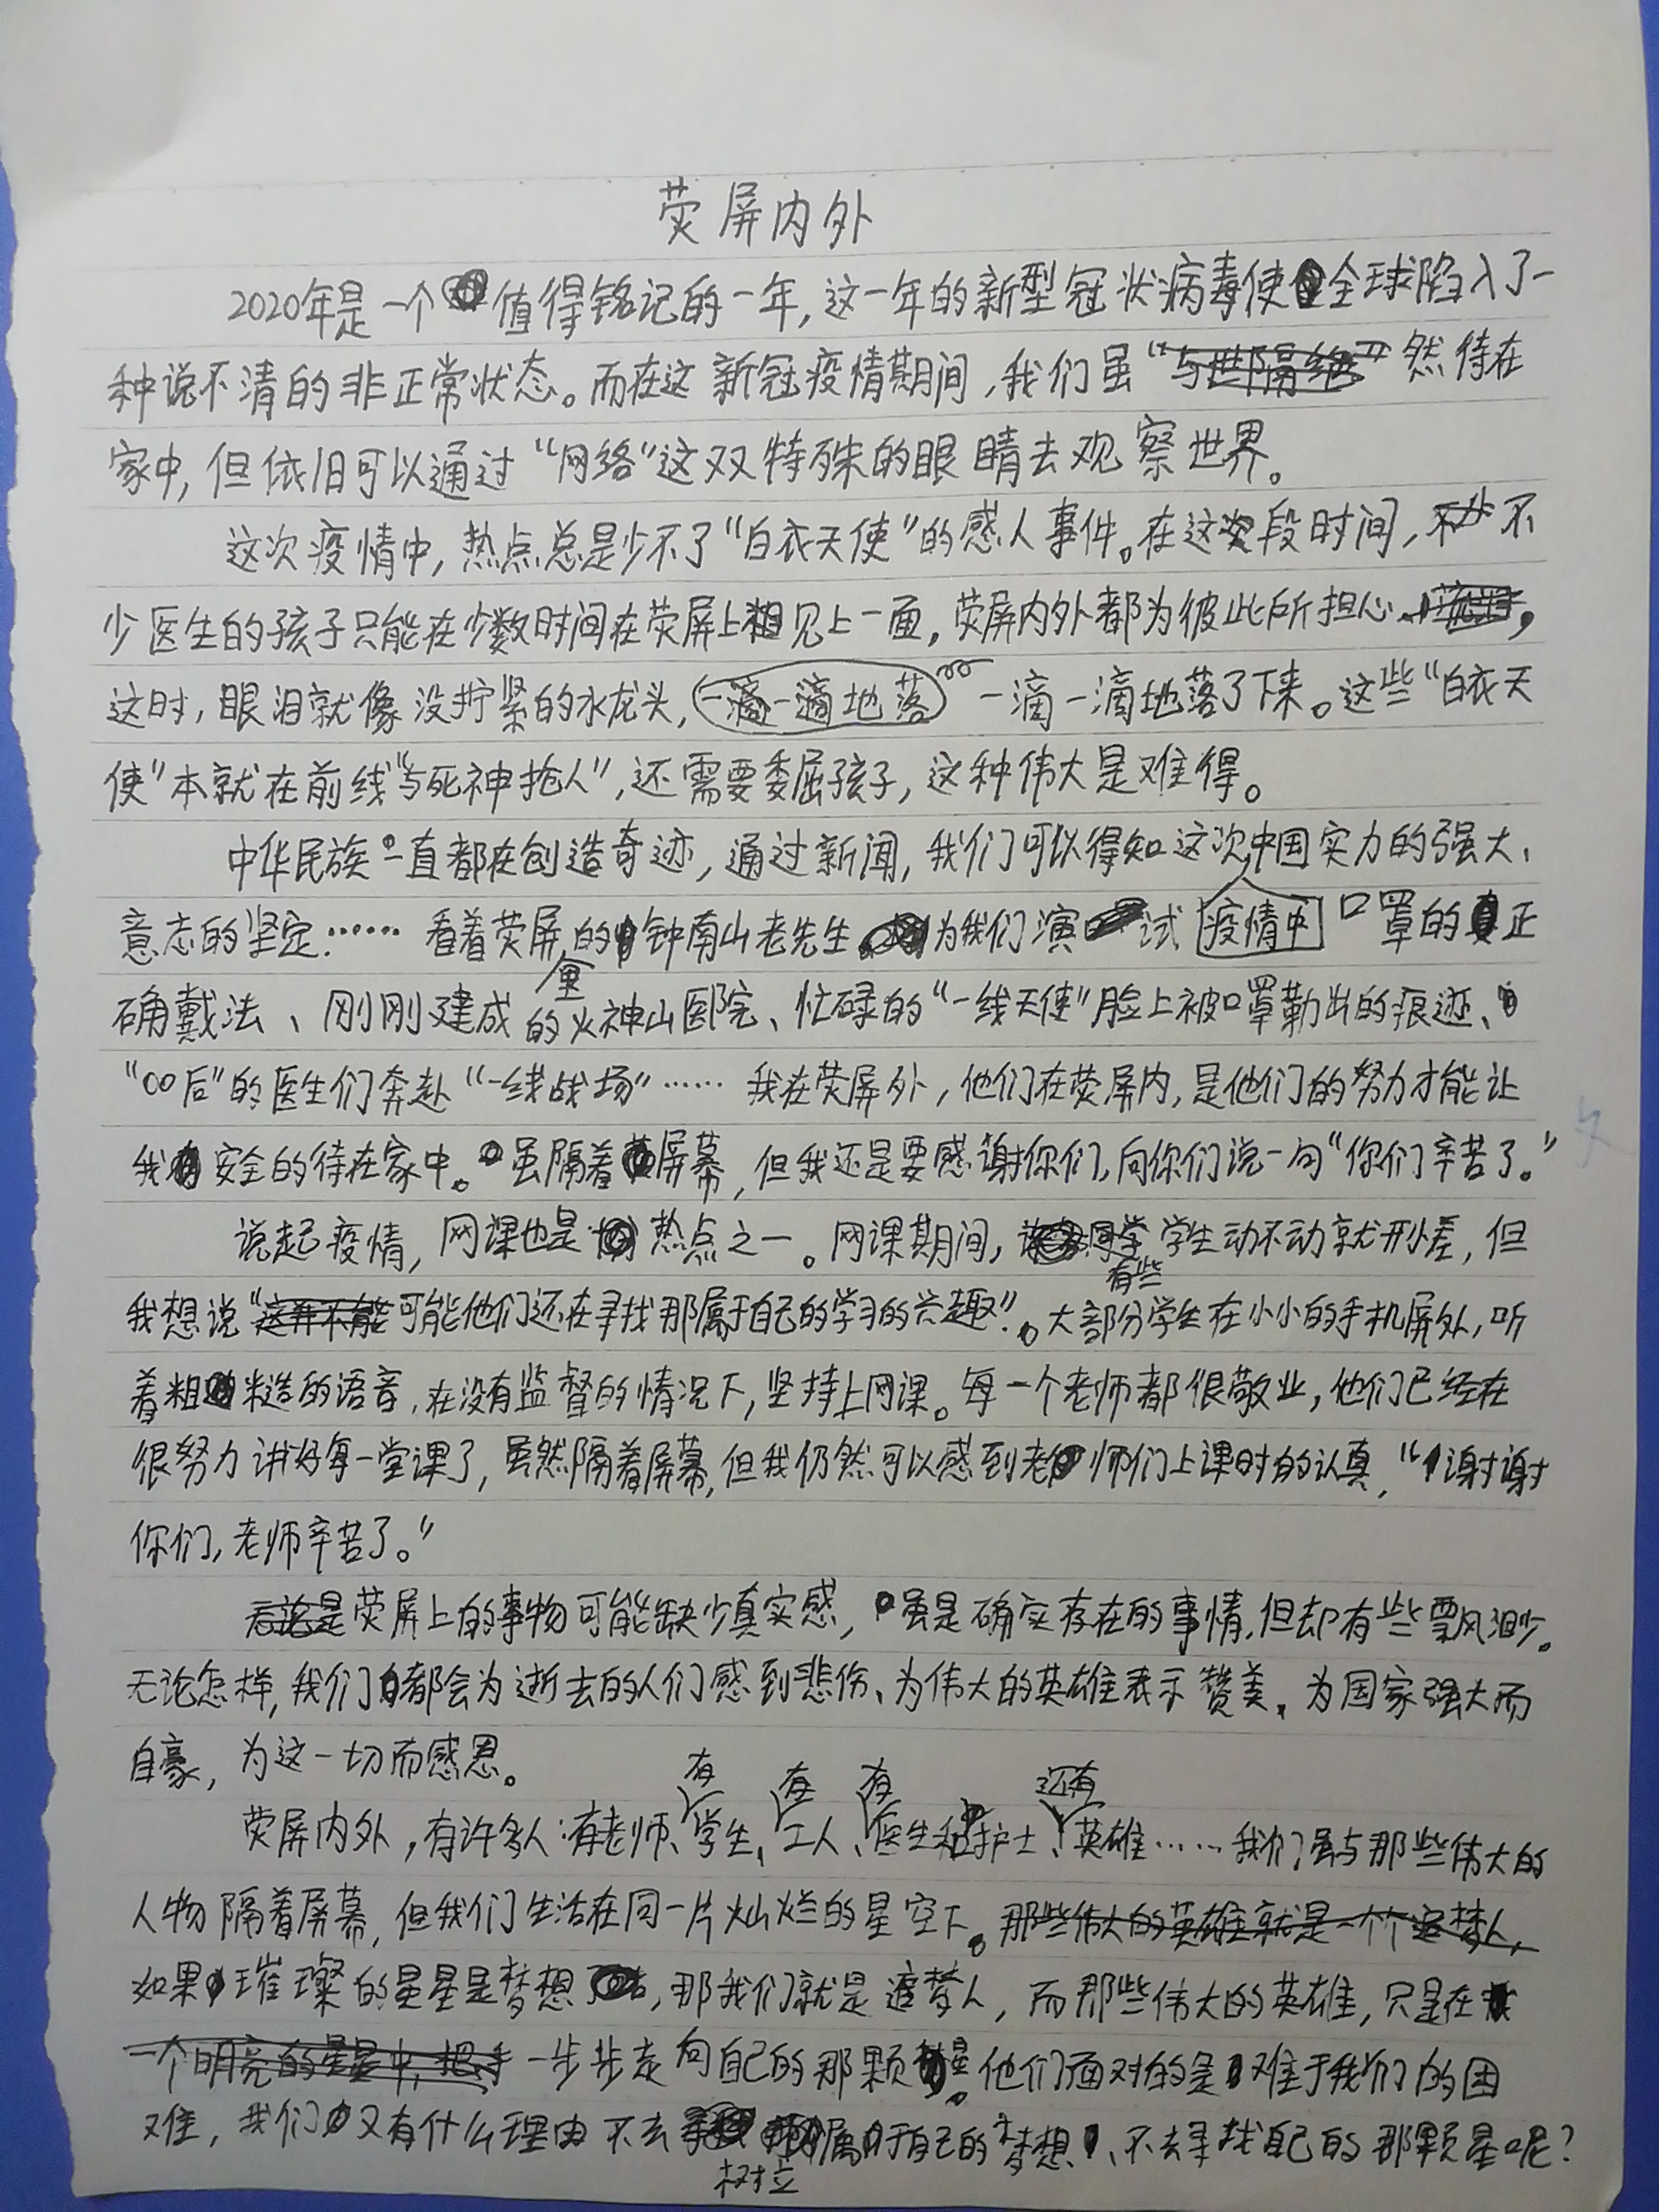 荧屏内外
2020年是一个值得铭记的一年,这一年的新型冠状病毒使全球陷入了一
种说不清的非正常状态。而在这新冠疫情期间,我们虽“与世隔绝”然待在
家中,但依旧可以通过“网络”这双特殊的眼睛去观察世界。
这次疫情中,热点总是少不了“白衣天使”的感人事件。在这段时间,不少不
少医生的孩子只能在少数时间在荧屏上相见上一面,荧屏内外都为彼此所担心,
这时,眼泪就像没拧紧的水龙头,一滴一滴地落 一滴一滴地落了下来。这些“白衣天
使”本就在前线“与死神抢人”,还需要委屈孩子,这种伟大是难得。
中华民族一直都在创造奇迹,通过新闻,我们可以得知这次疫情中中国实力的强大、
意志的坚定……看着荧屏里的钟南山老先生为我们演试口罩的正
确戴法、刚刚建成的火神山医院、忙碌的“一线天使”脸上被口罩勒出的痕迹、
“00后”的医生们奔赴“一线战场”……我在荧屏外,他们在荧屏内,是他们的努力才能让
我安全的待在家中。虽隔着屏幕,但我还是要感谢你们,向你们说一句“你们辛苦了。”
说起疫情,网课也是热点之一。网课期间,有些学生动不动就开小差,但
我想说“可能他们还在寻找那属于自己的学习的兴趣”。大部分学生在小小的手机屏外,听
着粗糙的语音,在没有监督的情况下,坚持上网课。每一个老师都很敬业,他们已经在
很努力讲好每一堂课了,虽然隔着屏幕,但我仍然可以感到老师们上课时的认真,“谢谢
你们,老师辛苦了。”
荧屏上的事物可能缺少真实感,虽是确实存在的事情,但却有些飘渺。
无论怎样,我们都会为逝去的人们感到悲伤、为伟大的英雄表示赞美、为国家强大而
自豪,为这一切而感恩。
荧屏内外,有许多人:有老师、有学生、有工人、有医生和护士、还有英雄……我们虽与那些伟大的
人物隔着屏幕,但我们生活在同一片灿烂的星空下。那些伟大的英雄就是一个个追梦人,
如果璀璨的星星是梦想,那我们就是追梦人,而那些伟大的英雄,只是在
一个明亮的星星中,把手 一步步走向自己的那颗星。他们面对的是难于我们的困
难,我们又有什么理由不去树立属于自己的梦想、不去寻找自己的那颗星呢?